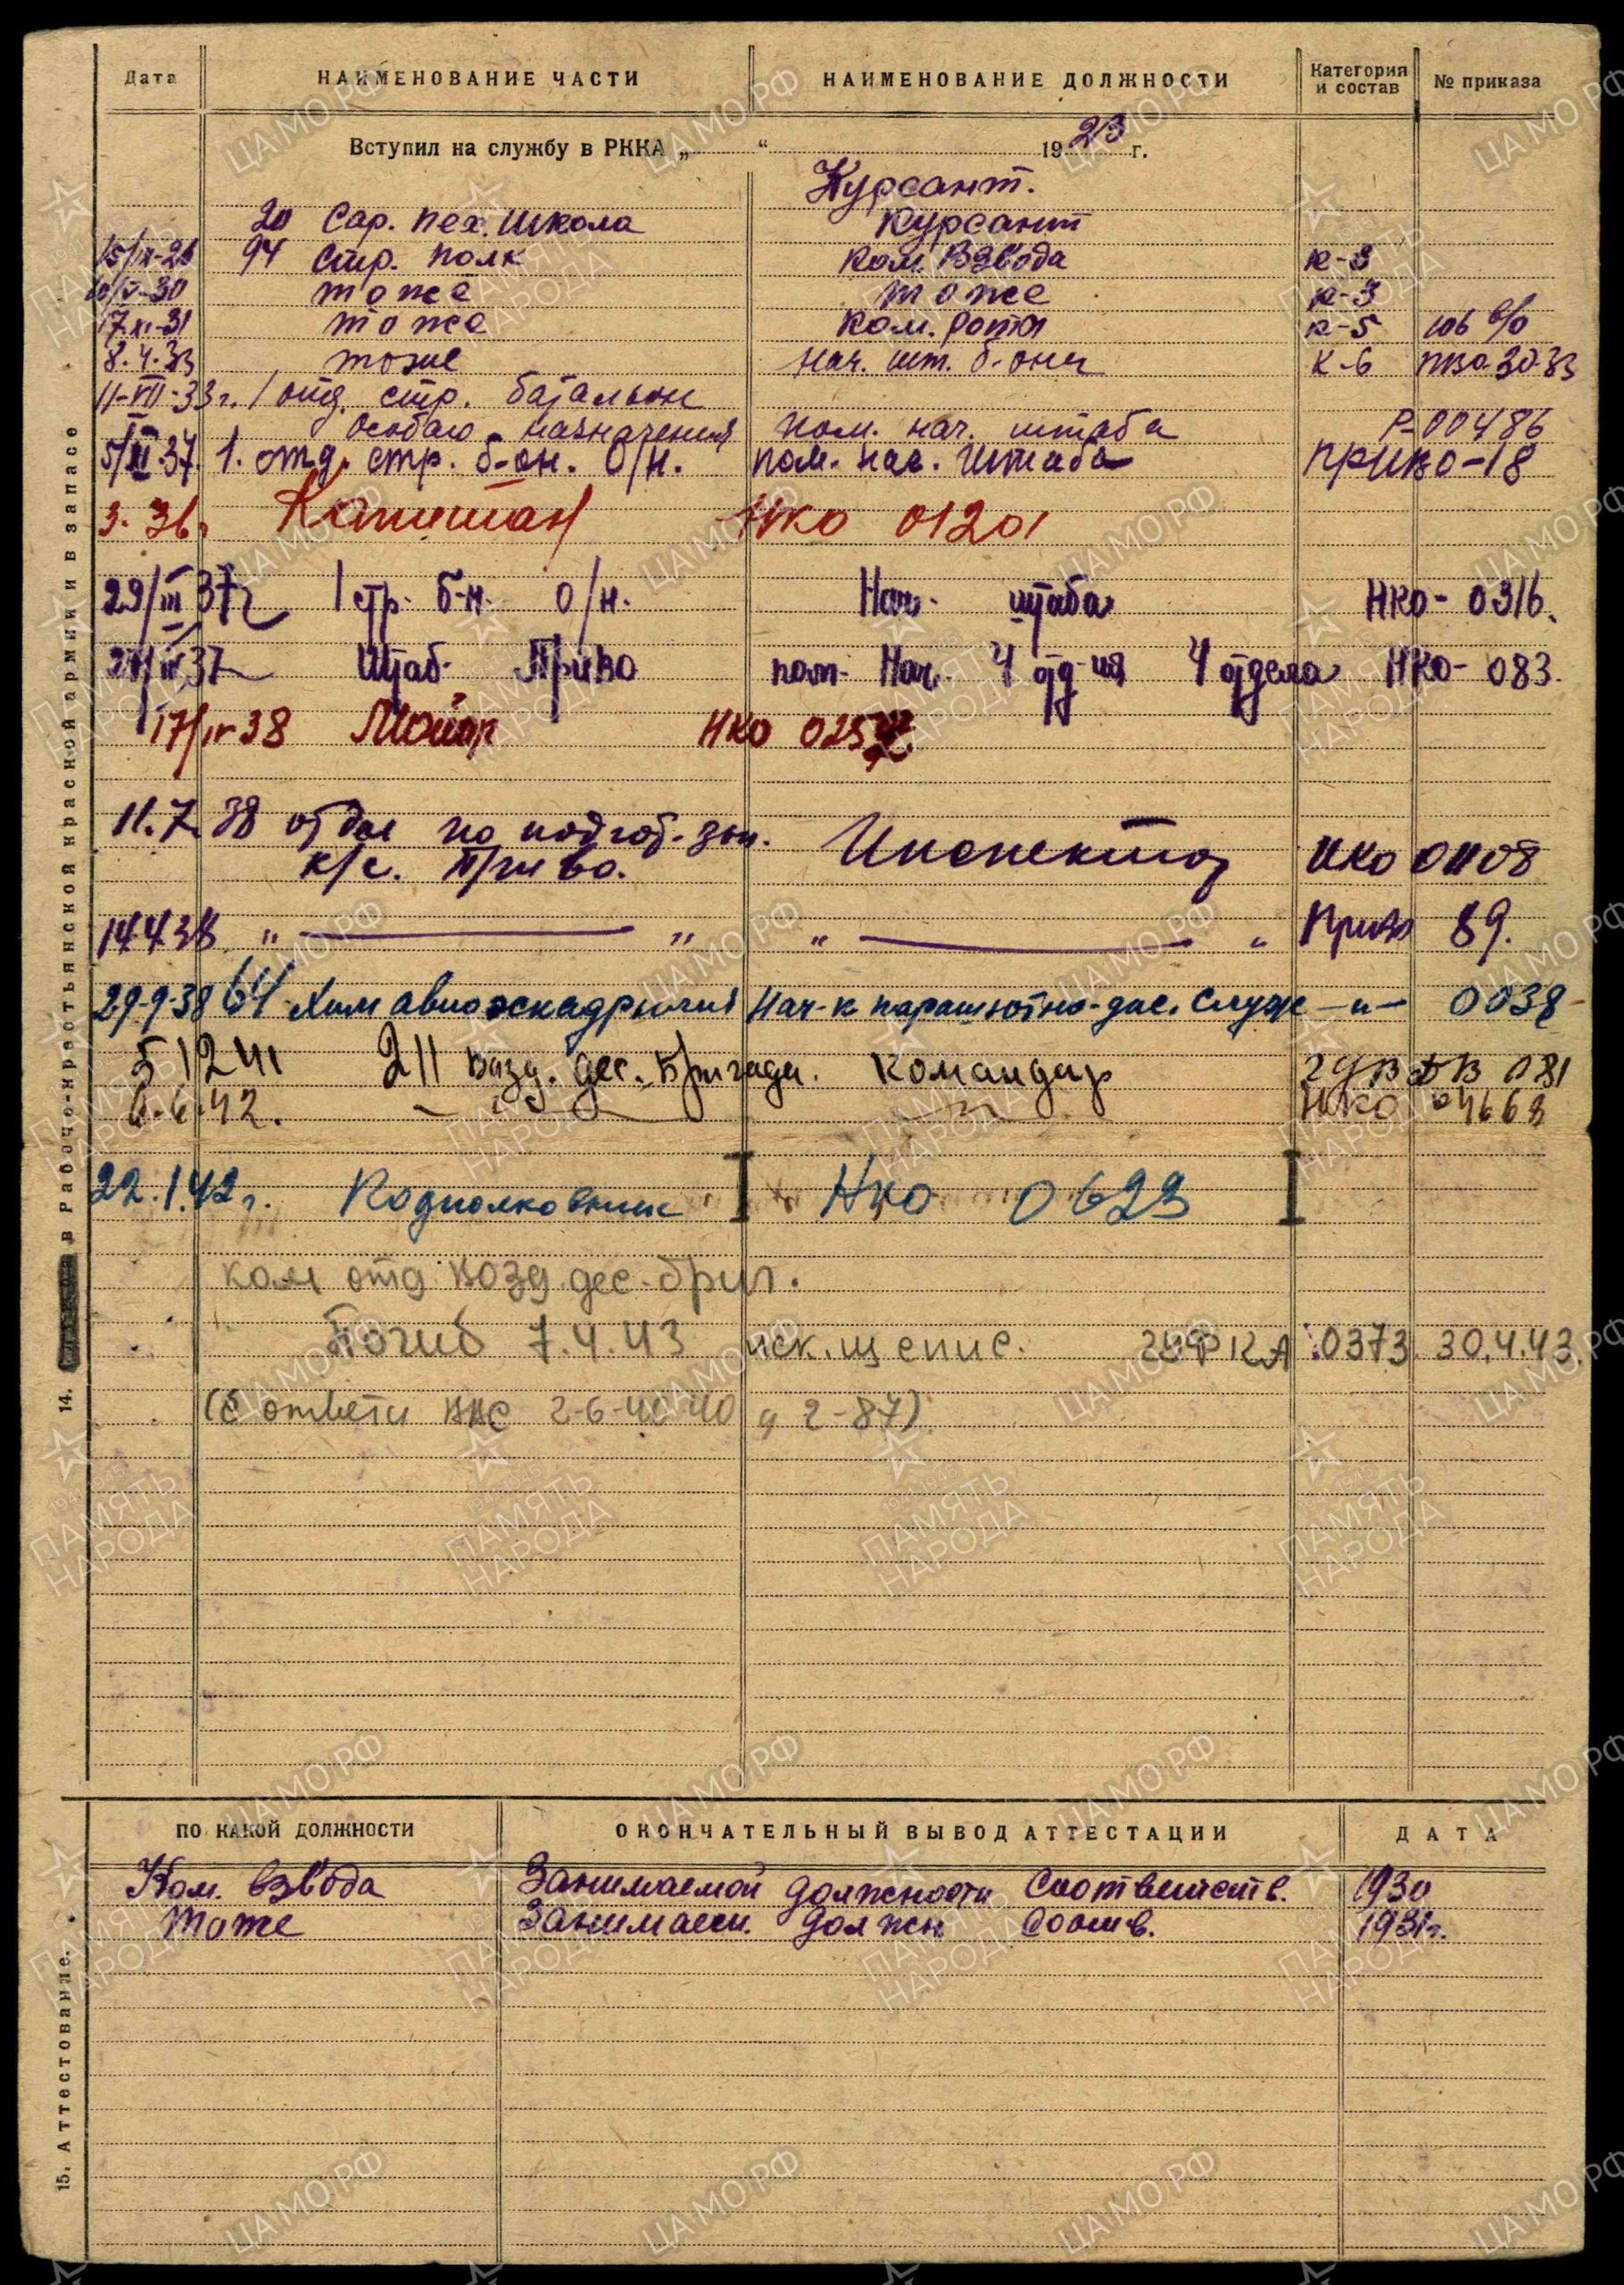 Дата НАИМЕНОВАНИЕ ЧАСТИ НАИМЕНОВАНИЕ ДОЛЖНОСТИ Категория и состав № приказа
Вступил на службу в РККА „ “ 1923 г.
Курсант.
20 Сар. пех. школа Курсант
94 Стр. полк Ком. взвода К-3
тоже тоже К-3
17.XI-31 тоже Ком. роты К-5
8.4.33 тоже Нач. шт. б-она К-6
11-VII-33г. 1 отд. стр. батальон
особого назначения пом. нач. штаба Р-00486
5/III 37. 1. отд. стр. б-он. О/Н. пом. нач. штаба ПриВО-18
3. 36г Капитан НКО 01201
29/III 37г 1 стр. б-н. О/Н. Нач. штаба НКО-0316.
Штаб ПриВО пом. Нач. 4 отд-ия 4 отдела НКО-083.
17/IV 38 Майор НКО
11.7.38 отдел по подгот. зап.
к/с. ПриВО. Инспектор НКО 01108
14.4.38 „ — „ „ — „ ПриВО 89.
29-9-38 64 Хим авиоэскадрилия Нач-к парашютно-дес. служ —„— 0038
5 12 41 211 возд. дес. бригада. командир ГУВДВ 081
6.6.42. —„— —„— НКО 04668
22.1.42г. Подполковник НКО 0623
ком отд возд. дес. бриг.
Погиб 7.4.43 иск. из спис. ГУФКА 0373 30.4.43.
14. в Рабоче-крестьянской красной армии и в запасе
ПО КАКОЙ ДОЛЖНОСТИ ОКОНЧАТЕЛЬНЫЙ ВЫВОД АТТЕСТАЦИИ ДАТА
Ком. взвода Занимаемой должности Соответств. 1930
Тоже Занимаем. должн Соотв. 1931г.
15. Аттестование.
ЦАМО.РФ
ПАМЯТЬ НАРОДА